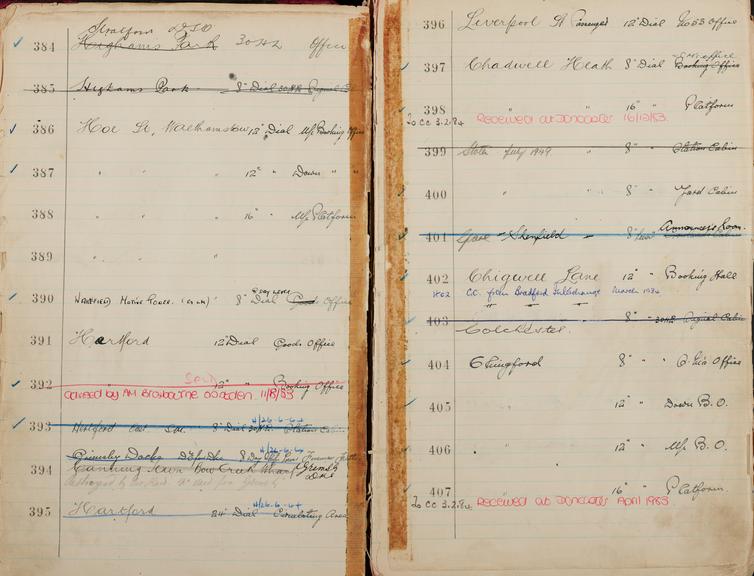 Stratford
384 Highams Park 30 H2 Office
385 Highams Park 8" Dial 30 Hr Signal
386 Hoe St. Walthamstow 12" Dial Up Booking Office
387 " " " 12" " Down " "
388 " " " 16" " Up Platform
389 " " "
390 Motive Power. 8" Dial Goods Office
391 Hertford 12" Dial Goods Office
Sold
392 12" " Booking Office
11/8/83
4/26-6-64
393 Hertford East 8" Dial Station Cabin
4/26-6-64
Grimsby Docks
394 Canning Town Bow Creek Wharf (Grimsby Dks)
Destroyed by
4/26-6-64
395 Hertford 24" Dial Area
396 Liverpool St 12" Dial Office
397 Chadwell Heath 8" Dial Booking Office
398 " " 16" " Platform
To CC 3.2.84 Received at Doncaster 16/12/83.
399 Stolen July 1949 8" " Station Cabin
400 " " 8" " Yard Cabin
Announcers Room.
401 Spare - Shenfield - 8"
402 Chigwell Lane 12" " Booking Hall
C.C. from Bradford Interchange March 1984
403 8" " 30 Hr Signal Cabin
Colchester.
404 Chingford 8" " Office
405 " 12" " Down B.O.
406 " 12" " Up B.O.
407 " 16" " Platform
To CC 3.2.84 Received at Doncaster April 1983